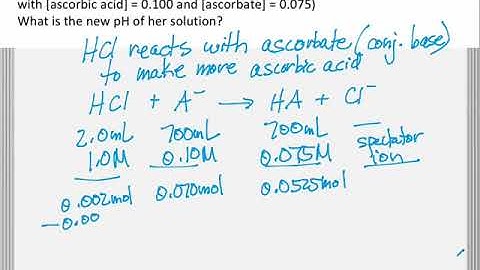 with [ascorbic acid] = 0.100 and [ascorbate] = 0.075)
What is the new pH of her solution?
HCl reacts with ascorbate (conj. base)
to make more ascorbic acid
HCl + A⁻ → HA + Cl⁻
2.0mL 700mL 700mL
1.0M 0.10M 0.075M spectator ion
0.002mol 0.070mol 0.0525mol
-0.00